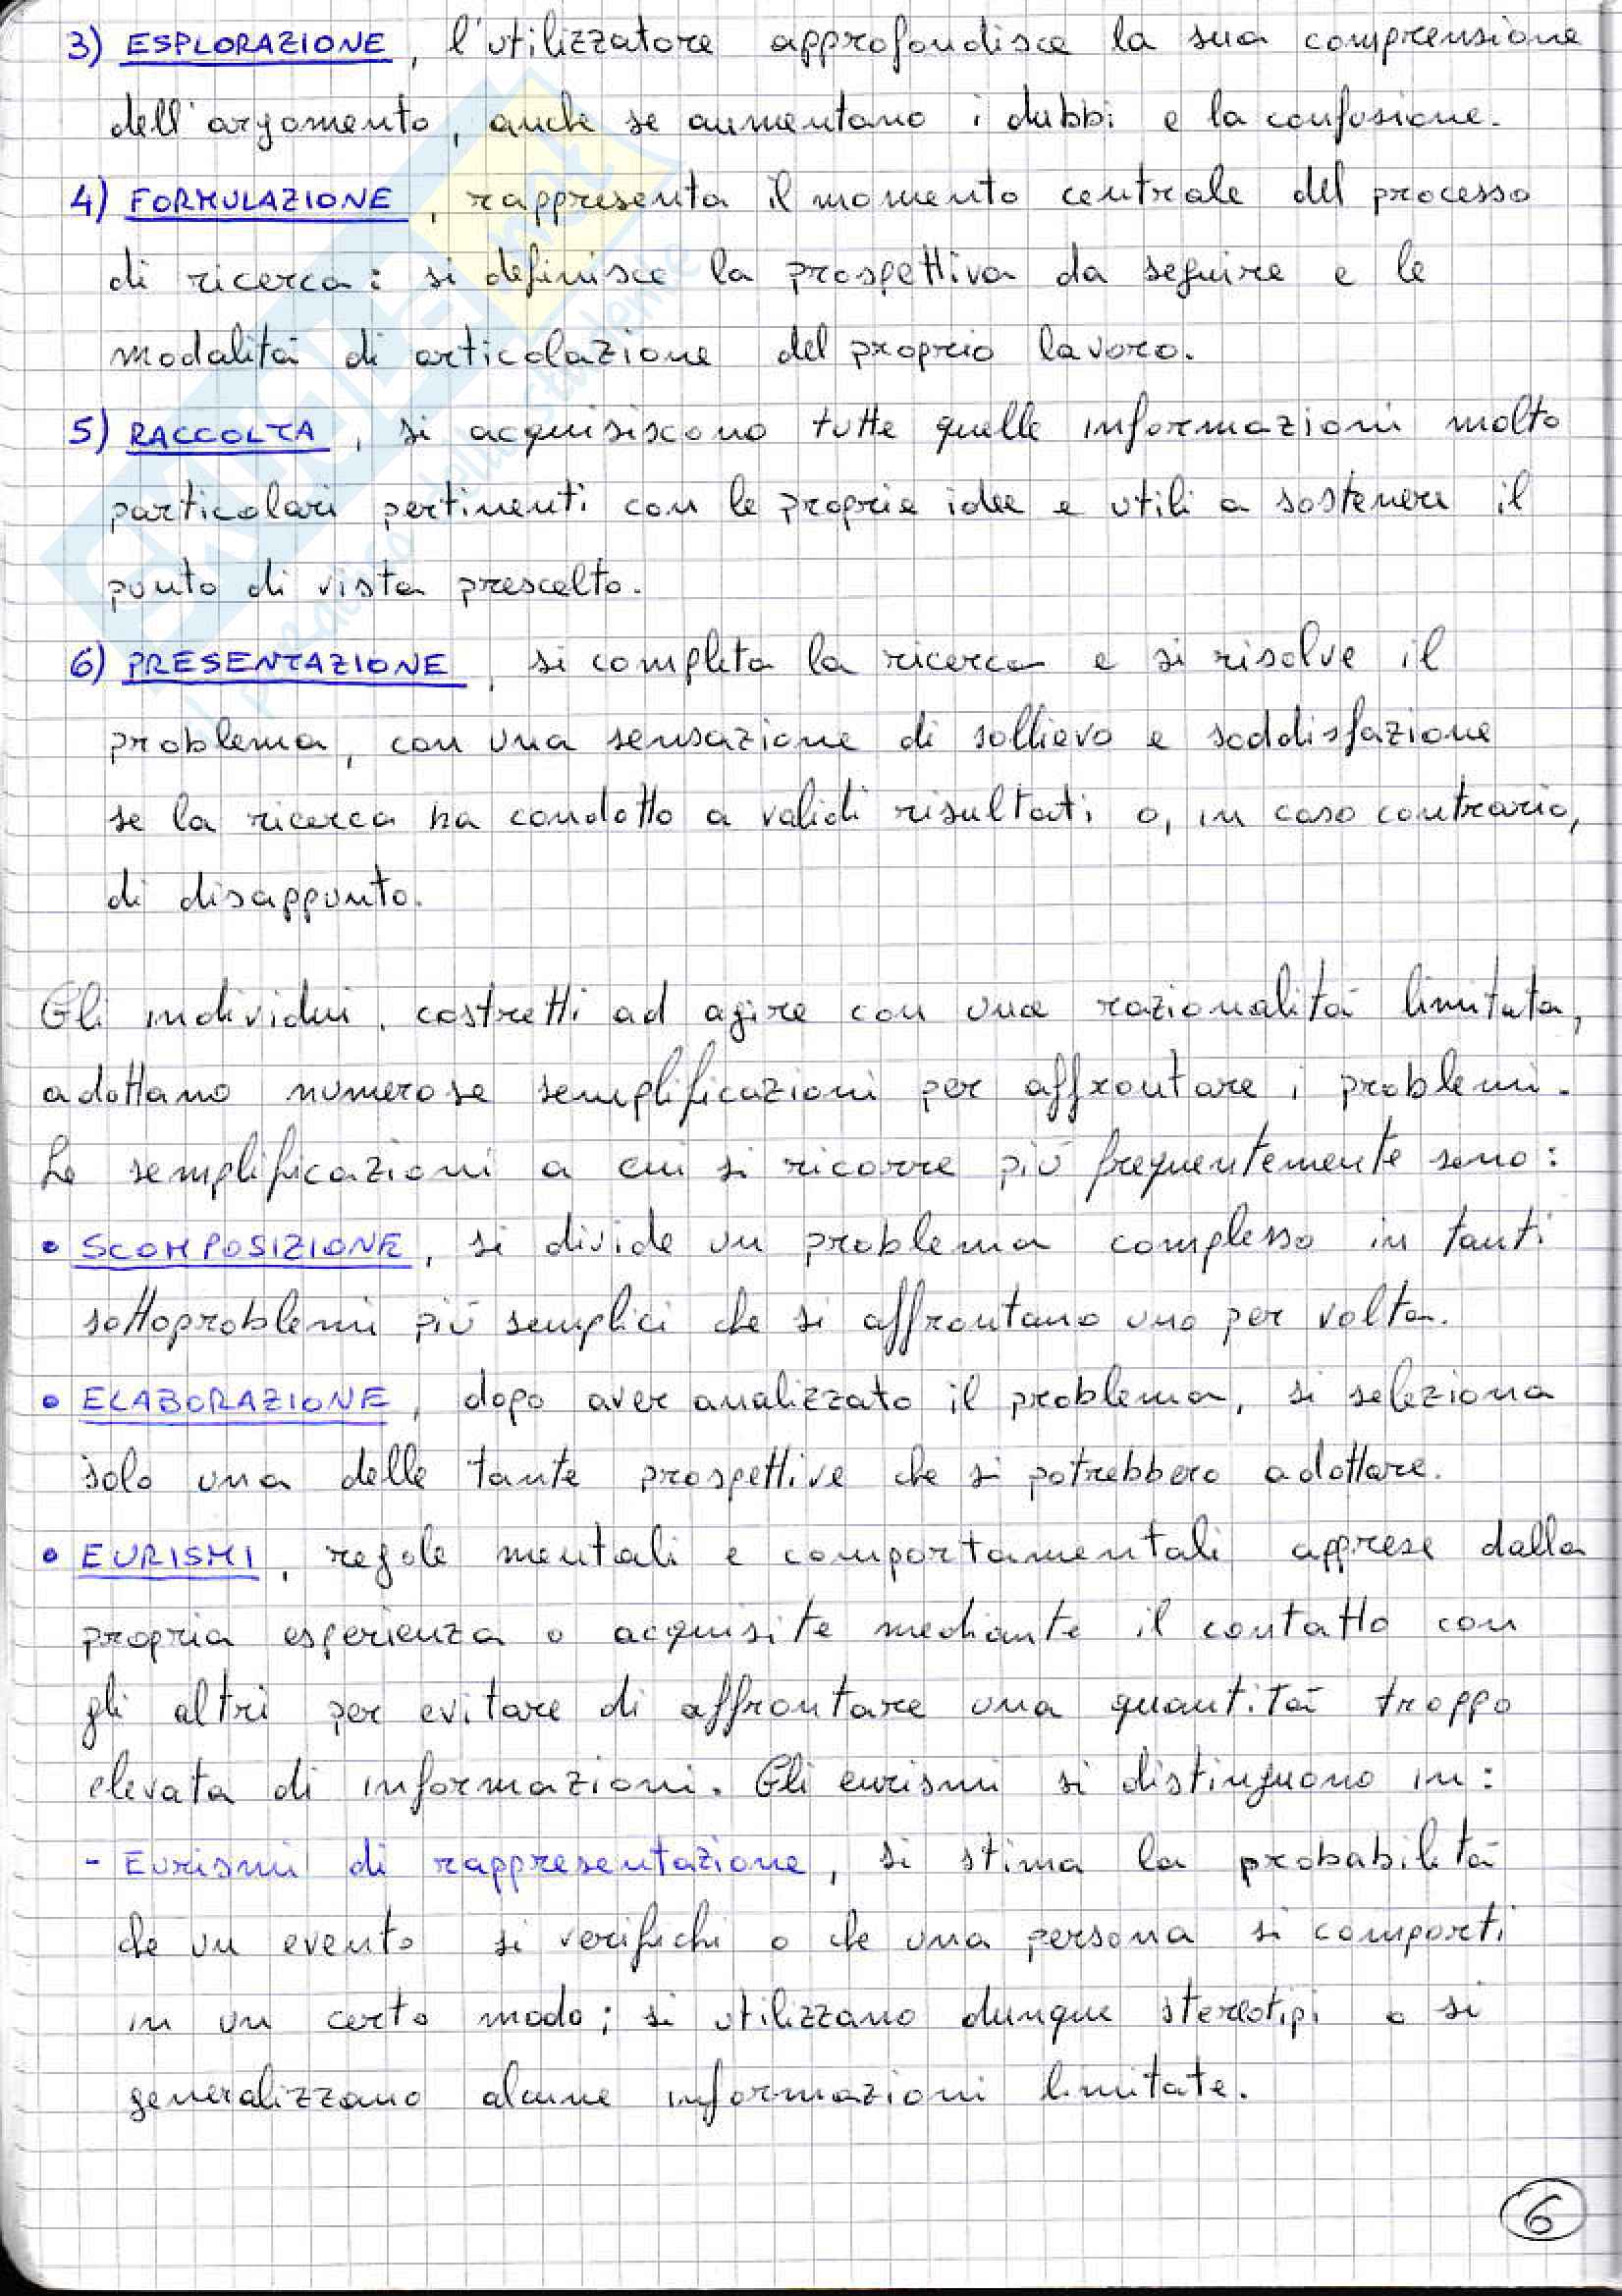 3) ESPLORAZIONE, l'utilizzatore approfondisce la sua comprensione
dell'argomento, anche se aumentano i dubbi e la confusione.
4) FORMULAZIONE, rappresenta il momento centrale del processo
di ricerca: si definisce la prospettiva da seguire e le
modalità di articolazione del proprio lavoro.
5) RACCOLTA, si acquisiscono tutte quelle informazioni molto
particolari pertinenti con le proprie idee e utili a sostenere il
punto di vista prescelto.
6) PRESENTAZIONE, si completa la ricerca e si risolve il
problema, con una sensazione di sollievo e soddisfazione
se la ricerca ha condotto a validi risultati o, in caso contrario,
di disappunto.
Gli individui, costretti ad agire con una razionalità limitata,
adottano numerose semplificazioni per affrontare i problemi.
Le semplificazioni a cui si ricorre più frequentemente sono:
• SCOMPOSIZIONE, si divide un problema complesso in tanti
sottoproblemi più semplici che si affrontano uno per volta.
• ELABORAZIONE, dopo aver analizzato il problema, si seleziona
solo una delle tante prospettive che si potrebbero adottare.
• EURISMI, regole mentali e comportamentali apprese dalla
propria esperienza o acquisite mediante il contatto con
gli altri per evitare di affrontare una quantità troppo
elevata di informazioni. Gli eurismi si distinguono in:
- Eurismi di rappresentazione, si stima la probabilità
che un evento si verifichi o che una persona si comporti
in un certo modo; si utilizzano dunque stereotipi o si
generalizzano alcune informazioni limitate.
6